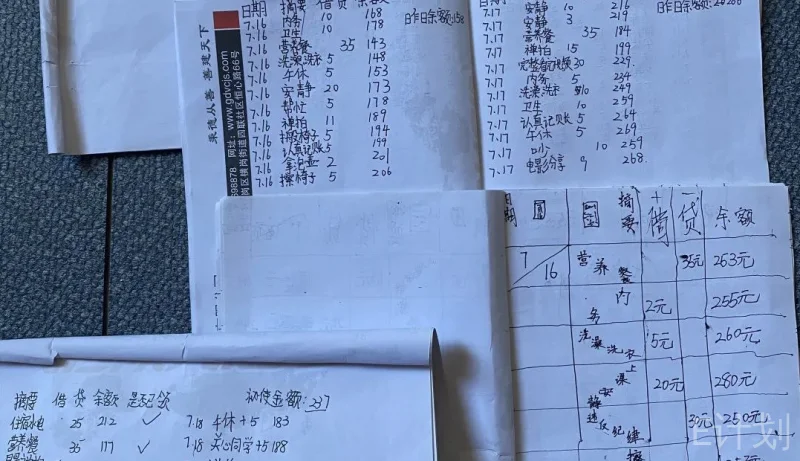 英德从善 善建天下
网址：www.gdvcjs.com
岗区横岗街道四联社区恒心路66号
日期 摘要 借 贷 余额
昨日余额:158
7.16 内务 10 168
7.16 卫生 10 178
7.16 营养餐 35 143
7.16 洗澡洗衣 5 148
7.16 午休 5 153
7.16 安静 20 173
7.16 帮忙 5 178
7.16 裸拍 11 189
7.16 扫椅子 5 194
7.16 认真记账 5 199
7.16 2 201
7.16 擦椅子 5 206
昨日余额:206
7.17 安静 10 216
7.17 安静 3 219
7.17 营养餐 35 184
7.17 裸拍 15 199
7.17 完整自记账 30 229
7.17 内务 5 234
7.17 洗澡洗衣 10 249
7.17 卫生 10 259
7.17 认真记账 5 264
7.17 午休 5 269
7.17 10 259
7.17 电影分享 9 268
日期 摘要 +借 -贷 余额
7/16 营养餐 35元 253元
内务 2元 255元
洗澡洗衣 5元 260元
上课安静 20元 280元
违反纪律 30元 250元
摘要 借 贷 余额 是否已领
初使金额:237
住宿水电 25 212 ✓
7.18 午休 +5 183
营养餐 35 177 ✓
7.18 关心同学 +5 188
E计划